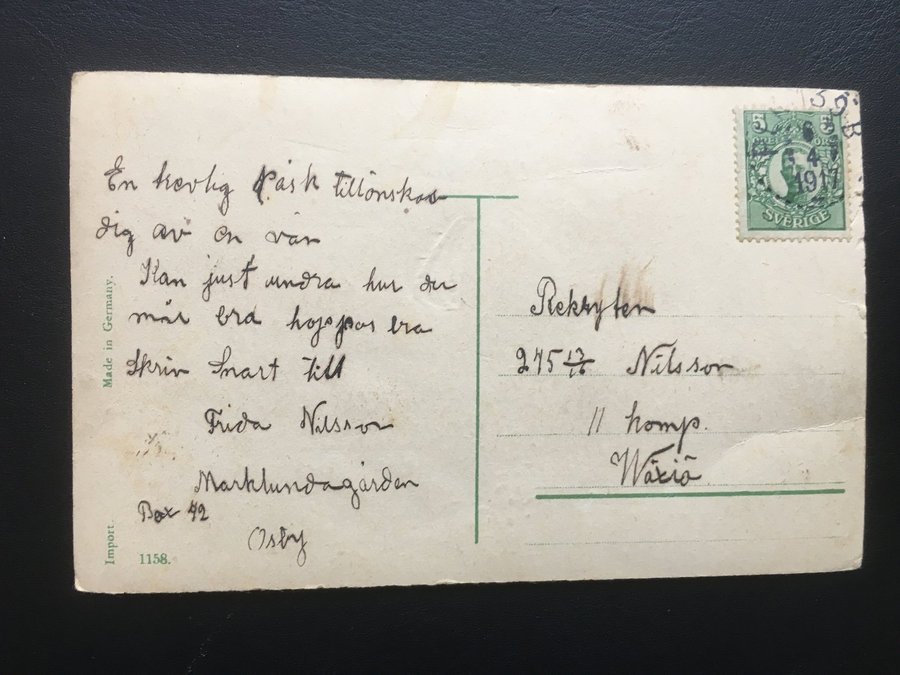 En hevlig Påsk tillönskas
dig av en vän
Kan just undra hur du
mår bra hoppas bra
Skriv Snart till
Frida Nilsson
Marklundagården
Box 42
Osby
Made in Germany.
Import.
1158.
5 5
6
4
1917
SVERIGE
Rekryten
275 13/16 Nilsson
11 komp.
Wäxiö